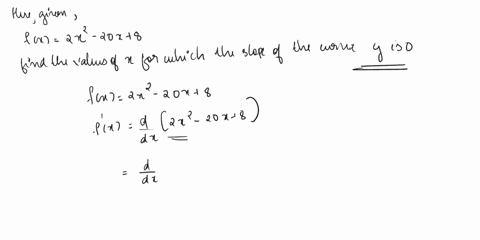 Here, given,
f(x) = 2x² - 20x + 8
find the values of x for which the slope of the curve y is 0
f(x) = 2x² - 20x + 8
f'(x) = d/dx (2x² - 20x + 8)
= d/dx